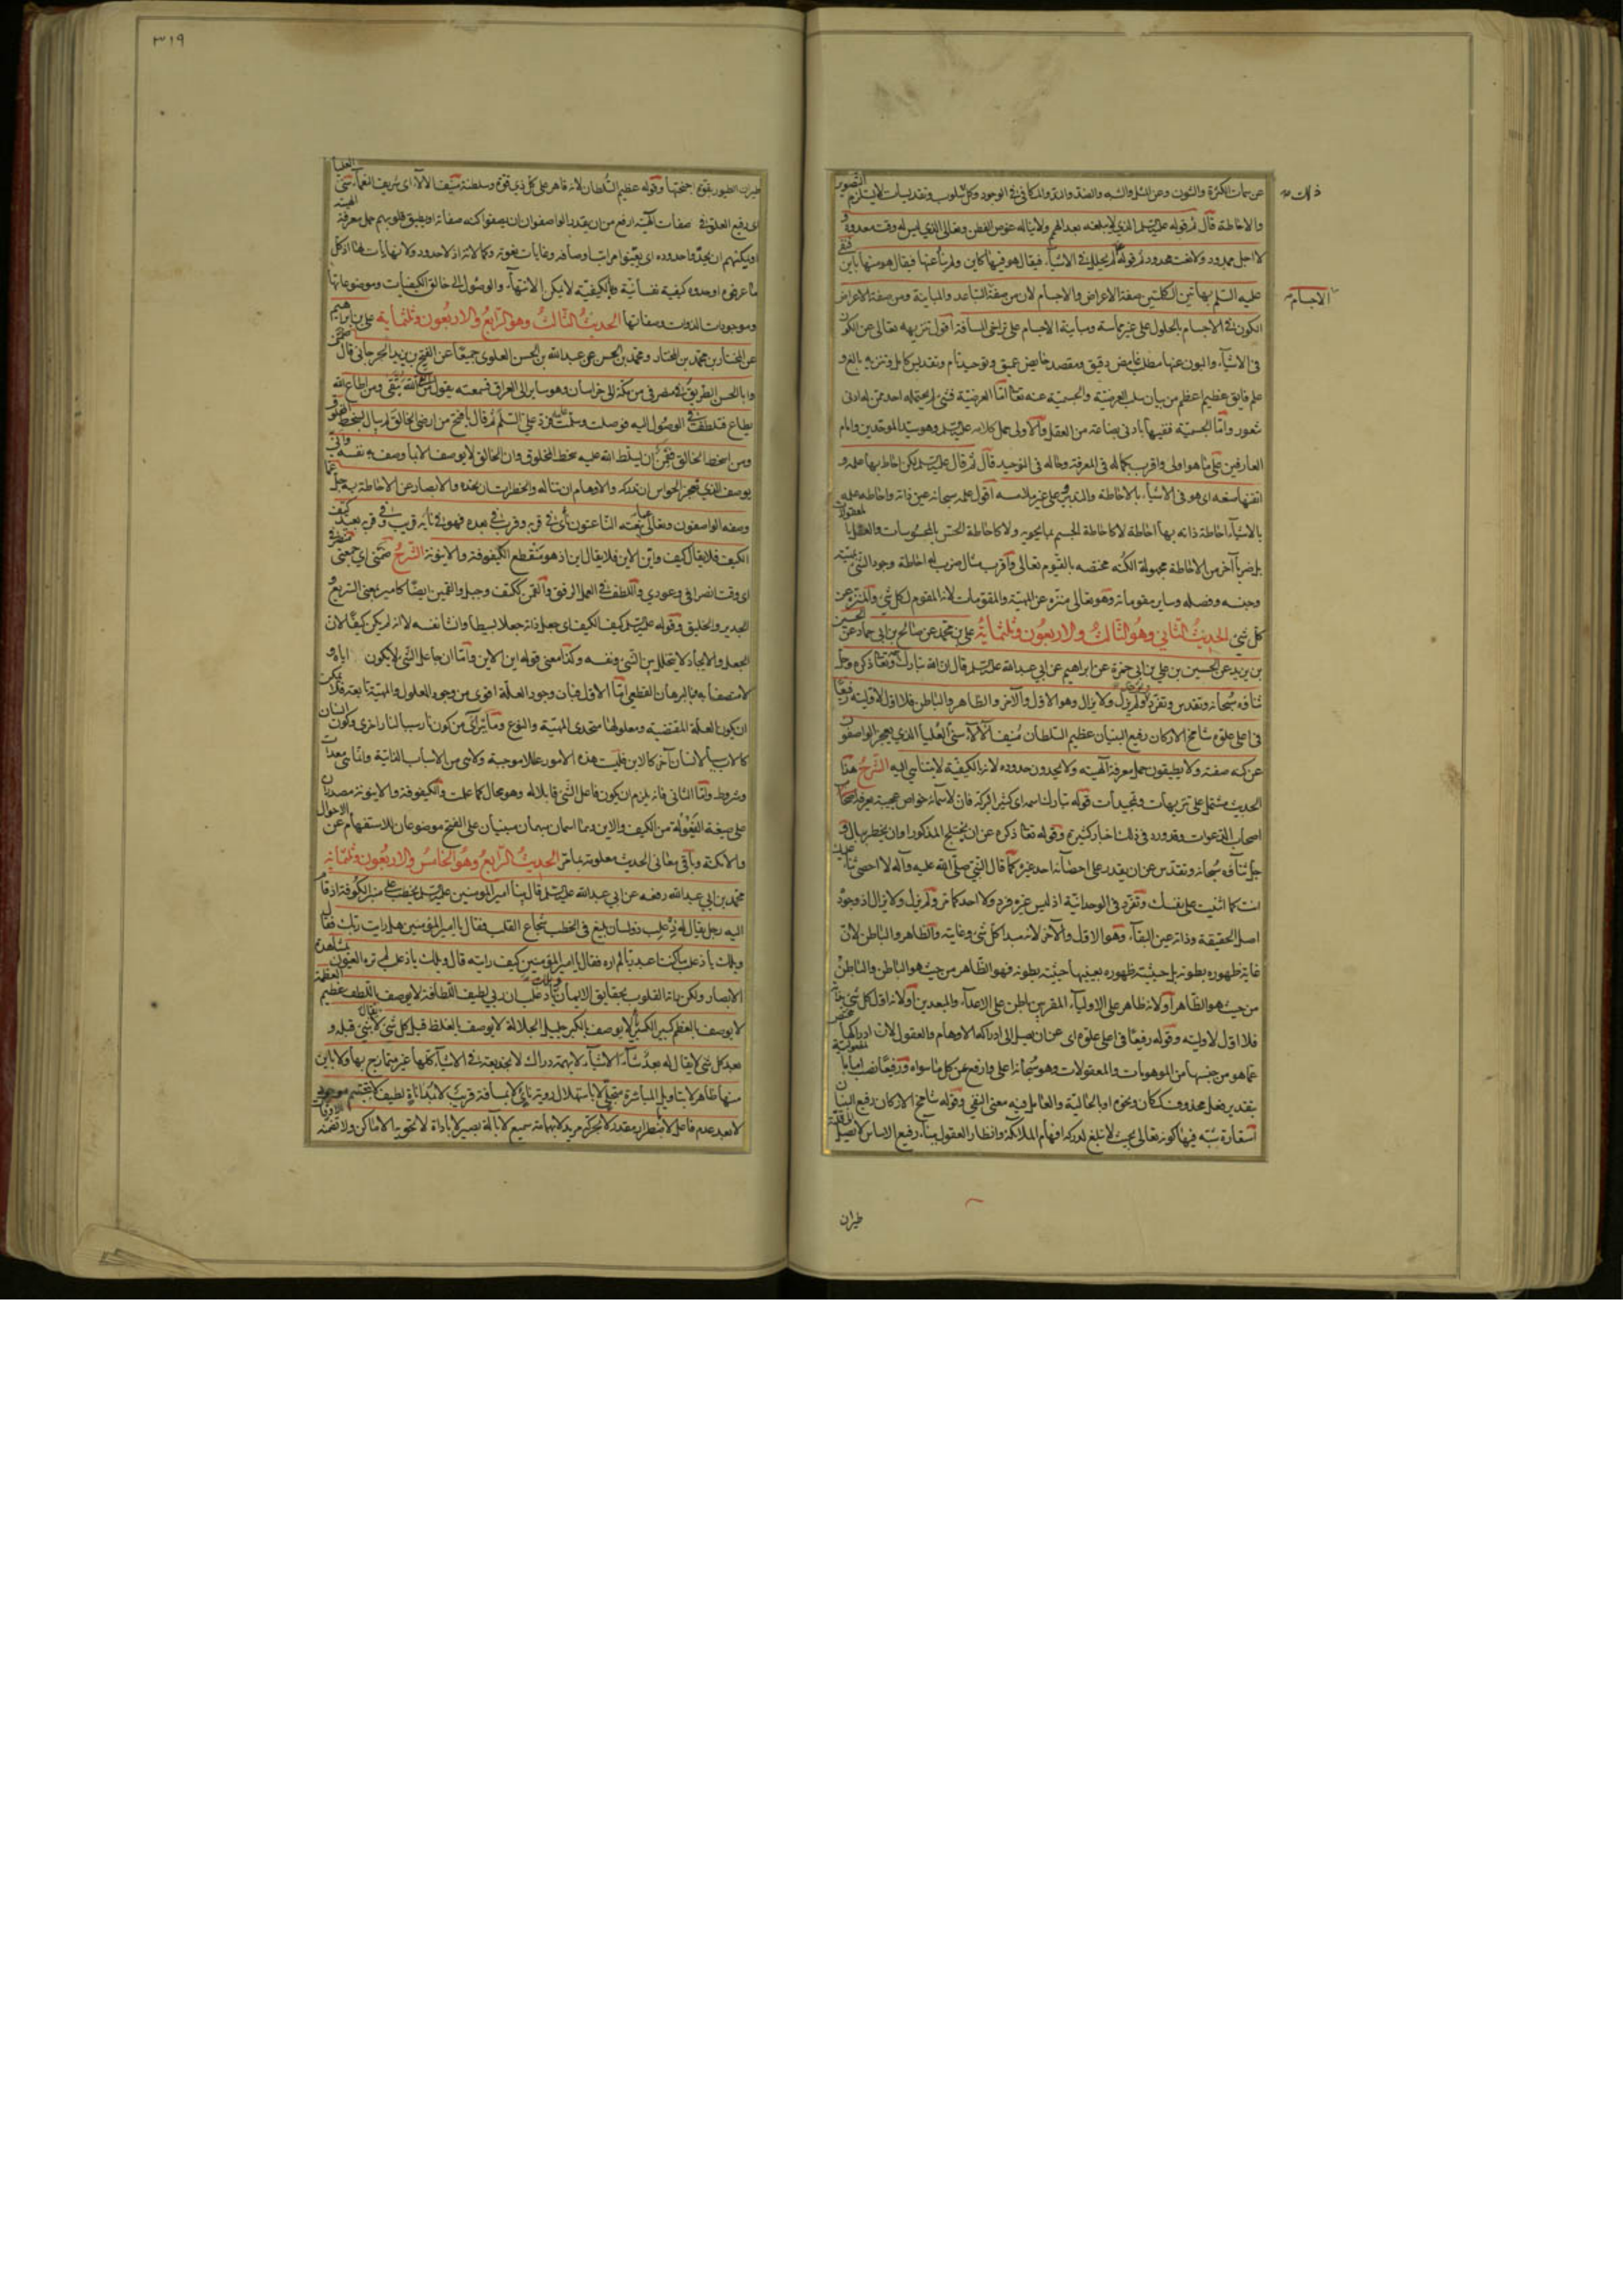 عن سمات الكثرة والشون وعن المثل والشبه والضد والند والمكافى فى الوجود وكل سلوب وتقديسات لا يستلزم التصوير
والاحاطة قال ثم قوله عليه السلم الذى لا يبلغه بعد الهمم ولا يناله غوص الفطن وتعالى الذى ليس له وقت معدود و
لا اجل ممدود ولا نعت محدود ثم قوله لم يحلل فى الاشياء فيقال هو فيها كاين ولم ينأ عنها فيقال هو منها باين فنفى
عليه السلم بهاتين الكلمتين صفة الاعراض والاجسام لان من صفة التباعد والمباينة ومن صفة الاعراض
الكون فى الاجسام بالحلول على غير مماسة ومباينة الاجسام على تراخى المسافة اقول تنزيهه تعالى عن الكون
فى الاشياء والبون عنها مطلب غامض دقيق ومقصد غايص عميق وتوحيد تام وتقديس كامل وتنزيه بالغ و
علم فايق عظيم اعظم من بيان سلب العرضية والجسمية عنه تعالى اما العرضية فشئ لم يحتمله احد ممن له ادنى
شعور واما الجسمية فنفيها بادنى بضاعة من العقل والاولى حمل كلامه عليه السلم وهو سيد الموحدين وامام
العارفين على ما هو اولى واقرب بكماله فى المعرفة وحاله فى التوحيد قال ثم قال عليه السلم لكن احاط بها علمه و
اتقنها صنعه اى هو فى الاشياء بالاحاطة والتدبير وعلى غير ملامسة اقول علمه سبحانه عين ذاته واحاطة علمه
بالاشياء احاطة ذاته بها احاطة لا كاحاطة الجسم بما يحويه ولا كاحاطة الحس بالمحسوسات والعقل بالمعقولات
بل ضربا آخر من الاحاطة مجهولة الكنه مختصه بالقيوم تعالى واقرب مثال ضرب له احاطة وجود الشئ بمهيته
وجنسه وفصله وساير مقوماته وهو تعالى منزه عن المهية والمقومات لانه المقوم لكل شئ والمنزه عن
كل شئ الحديث الثانى وهو الثالث والاربعون وثلثمأية على بن محمد عن صالح بن ابى حماد عن الحسين
بن يزيد عن الحسين بن على بن ابى حمزة عن ابراهيم عن ابى عبد الله عليه السلم قال ان الله تبارك اسمه وتعالى ذكره وجل
ثناؤه سبحانه وتقدس وتفرد وتوحد ولم يزل ولا يزال وهو الاول والآخر والظاهر والباطن فلا اول لاوليته رفيعا
فى اعلى علوه شامخ الاركان رفيع البنيان عظيم السلطان منيف الآلاء سنى العلياء الذى يعجز الواصفون
عن كنه صفته ولا يطيقون حمل معرفة آلهيته ولا يحدون حدوده لانه بالكيفية لا يتناهى اليه الشرح هذا
الحديث مشتمل على تنزيهات وتمجيدات قوله تبارك اسمه اى كثير البركة فان لاسمائه خواص عجيبة يعرفها
اصحاب الدعوات وقد ورد فى ذلك اخبار كثيرة وقوله تعالى ذكره عن ان يختلج المذكور او ان يخطر ببال و
جل ثناؤه سبحانه وتقدس عن ان يقدر على احصائه احد غيره كما قال النبى صلى الله عليه وآله لا احصى ثناء عليك
انت كما اثنيت على نفسك وتفرد فى الوحدانية اذ ليس غيره فرد ولا احد كما مر ولم يزل ولا يزال اذ وجوده
اصل الحقيقة وذاته عين البقاء وهو الاول والآخر لانه مبدا كل شئ وغايته والظاهر والباطن لان
غاية ظهوره بطونه بل حيثية ظهوره بعينها حيثية بطونه فهو الظاهر من حيث هو الباطن والباطن
من حيث هو الظاهر او لانه ظاهر على الاولياء المقربين باطن على الاعداء والمبعدين او لانه اول كل شئ
فلا اول لاوليته وقوله رفيعا فى اعلى علوه اى عن ان يصل الى ادراكه الاوهام والعقول لان ادراكها مختصر
عما هو من جنسها من الموهومات والمعقولات وهو سبحانه اعلى وارفع عن كل ما سواه ورفيعا نصب اما
بتقدير فعل محذوف ككان ونحوه او بالحالية والعامل فيه معنى النفى وقوله شامخ الاركان رفيع البنيان
استعارة شبه فيها كونه تعالى بحيث لا تبلغ لدركه افهام الملائكة وانظار العقول ببناء رفيع الاساس لا يصل
ذلك
الاجسام
طيران
٣١٩
طيران الطيور بقوة اجنحتها وقوله عظيم السلطان لانه قاهر على كل ذى قوة وسلطنة منيف الآلاء اى شريف النعماء سنى العلياء
اى رفيع العلو فى صفات آلهيته ارفع من ان يقدر الواصفون ان يصفوا كنه صفاته او يطيق قلوبهم حمل معرفة آلهيته
او يمكنهم ان يحدوا حدوده اى يعينوا مراتب اوصافه وغايات نعوته وكمالاته اذ لا حدود ولا نهايات لها اذ كل
ما عرفوه او حدوه كيفية نفسانية وبالكيفية لا يمكن الانتهاء والوصول الى خالق الكيفيات وموضوعاتها
وموجد الذوات وصفاتها الحديث الثالث وهو الرابع والاربعون وثلثمأية على بن ابراهيم
عن المختار بن محمد بن المختار ومحمد بن الحسن عن عبد الله بن الحسن العلوى جميعا عن الفتح بن يزيد الجرجانى قال ضمنى
وابا الحسن الطريق فى منصرفى من مكة الى خراسان وهو ساير الى العراق فسمعته يقول من اتقى الله يتقى ومن اطاع الله
يطاع فتلطفت فى الوصول اليه فوصلت وسلمت عليه فرد على السلم ثم قال يا فتح من ارضى الخالق لم يبال بسخط المخلوق
ومن اسخط الخالق فقمن ان يسلط الله عليه سخط المخلوق وان الخالق لا يوصف الا بما وصف به نفسه وانى
يوصف الذى تعجز الحواس ان تدركه والاوهام ان تناله والخطرات ان تحده والابصار عن الاحاطة به جل عما
وصفه الواصفون وتعالى عما ينعته الناعتون نأى فى قربه وقرب فى نأيه فهو فى نأيه قريب وفى قربه بعيد كيف
الكيف فلا يقال كيف واين الاين فلا يقال اين اذ هو منقطع الكيفوفة والاينونة الشرح ضمنى اى جمعنى
اى وقت انصرافى وعودى والتلطف فى العمل الرفق والقمن ككتف وجبل والقمين ايضا كامير بمعنى السريع و
الجدير والخليق وقوله عليه السلم كيف الكيف اى جعل ذاته جعلا بسيطا وانشا نفسه لا انه لم يكن كيفا لان
الجعل والايجاد لا يتخلل بين الشئ ونفسه وكذا معنى قوله اين الاين واما ان جاعل الشئ لا يكون اياه و
لا متصفا به فبالبرهان القطعى اما الاول فبان وجود العلة اقوى من وجود المعلول والمهية تابعة فلا يمكن
ان يكون العلة المقتضية ومعلولها متحدى المهية والنوع وما يترائى من كون نار سببا لنار اخرى وكون انسان
كالاب سببا لانسان آخر كالابن فليست هذه الامور عللا موجبة ولا شئ من الاسباب الذاتية وانما هى معدات
وشروط واما الثانى فانه يلزم ان يكون فاعل الشئ قابلا له وهو محال كما علمت والكيفوفة والاينونة مصدران
على صيغة الفيعولة من الكيف والاين وهما اسمان مبهمان مبنيان على الفتح موضوعان للاستفهام عن الاحوال
والامكنة وباقى معانى الحديث معلومة بما مر الحديث الرابع وهو الخامس والاربعون وثلثمأية
محمد بن ابى عبد الله رفعه عن ابى عبد الله عليه السلم قال بينا امير المؤمنين عليه السلم يخطب على منبر الكوفة اذ قام
اليه رجل يقال له ذعلب ذو لسان بليغ فى الخطب شجاع القلب فقال يا امير المؤمنين هل رايت ربك فقال
ويلك يا ذعلب ما كنت اعبد ربا لم اره فقال يا امير المؤمنين كيف رايته قال ويلك يا ذعلب لم تره العيون بمشاهدة
الابصار ولكن رأته القلوب بحقايق الايمان ويلك يا ذعلب ان ربى لطيف اللطافة لا يوصف باللطف عظيم العظمة
لا يوصف بالعظم كبير الكبرياء لا يوصف بالكبر جليل الجلالة لا يوصف بالغلظ قبل كل شئ لا يقال شئ قبله و
بعد كل شئ لا يقال له بعد شاء الاشياء لا بهمة دراك لا بخديعة فى الاشياء كلها غير متمازج بها ولا باين
منها ظاهر لا بتاويل المباشرة متجل لا باستهلال رؤية نائ لا بمسافة قريب لا بمداناة لطيف لا بتجسم موجود
لا بعد عدم فاعل لا باضطرار مقدر لا بحركة مريد لا بهمامة سميع لا بآلة بصير لا باداة لا تحويه الاماكن ولا تضمنه الاوقات